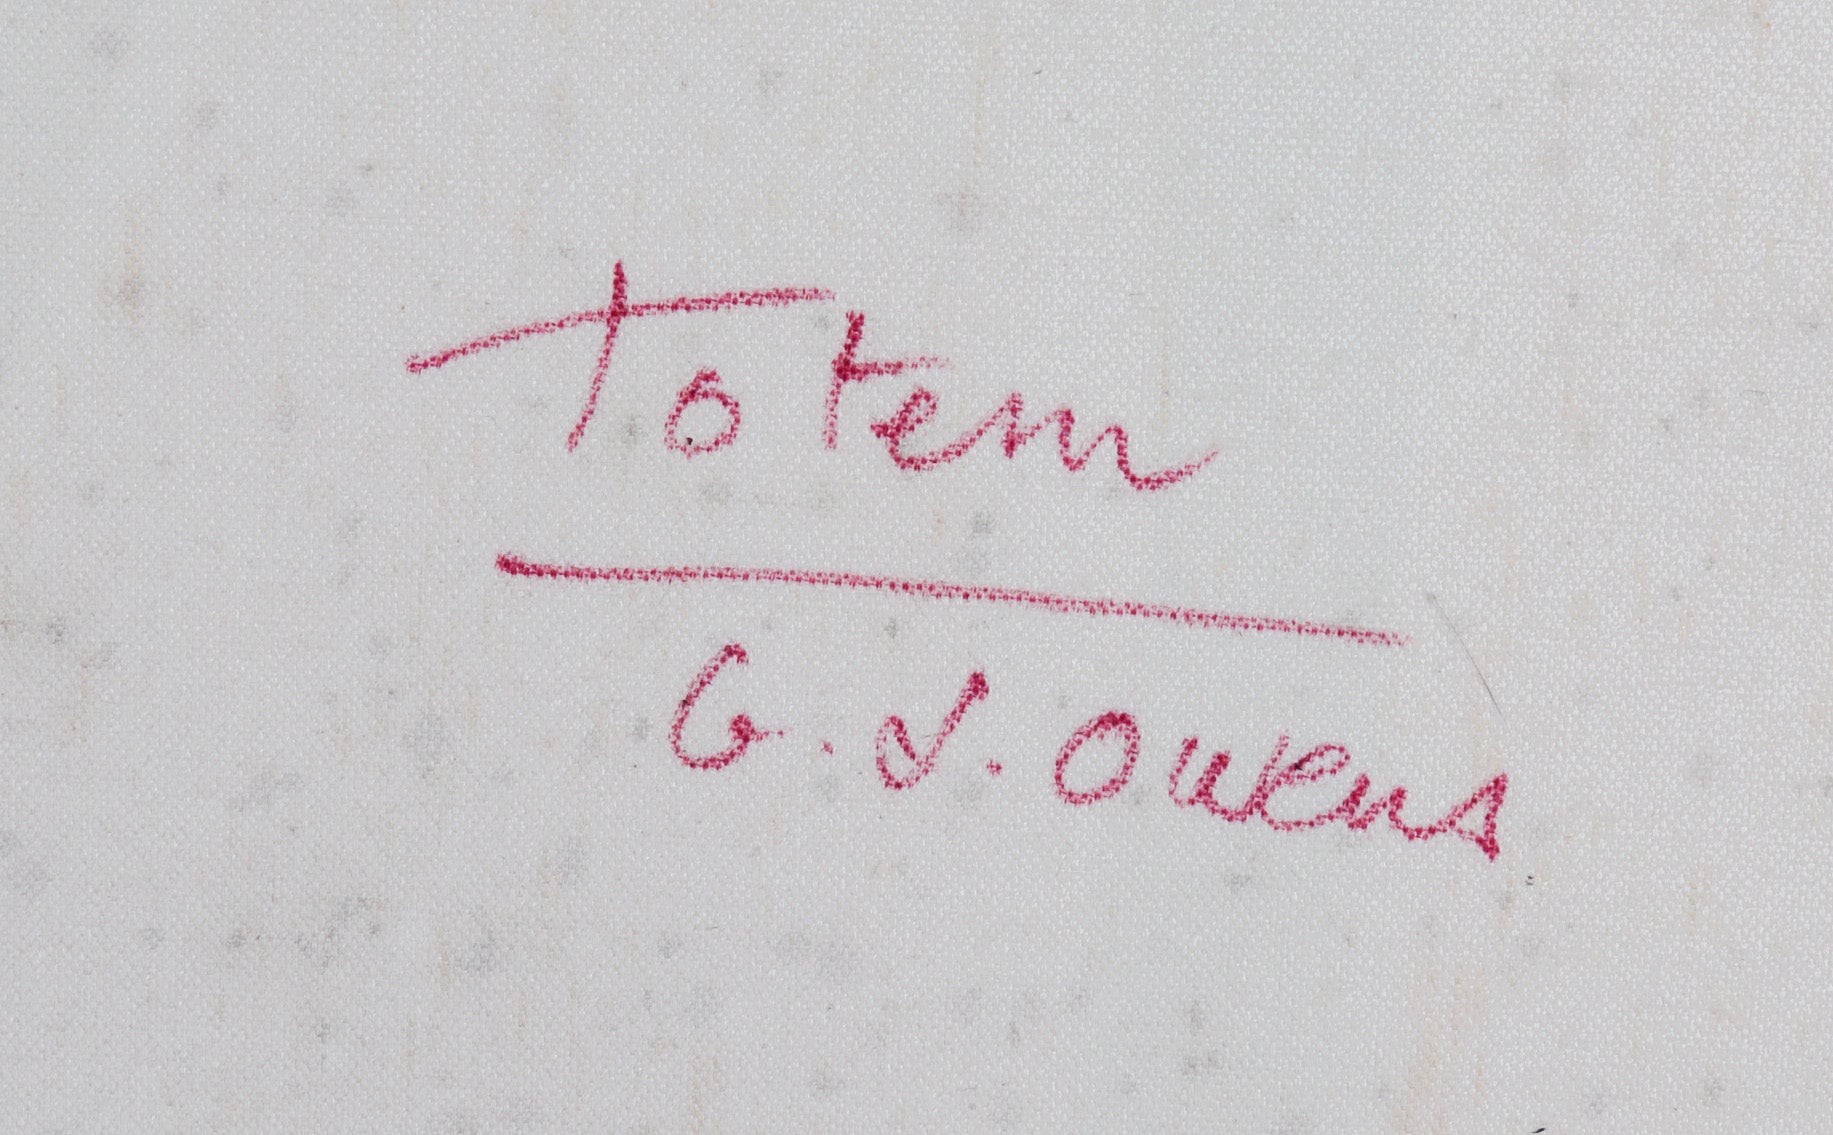 Totem
G. J. Owens